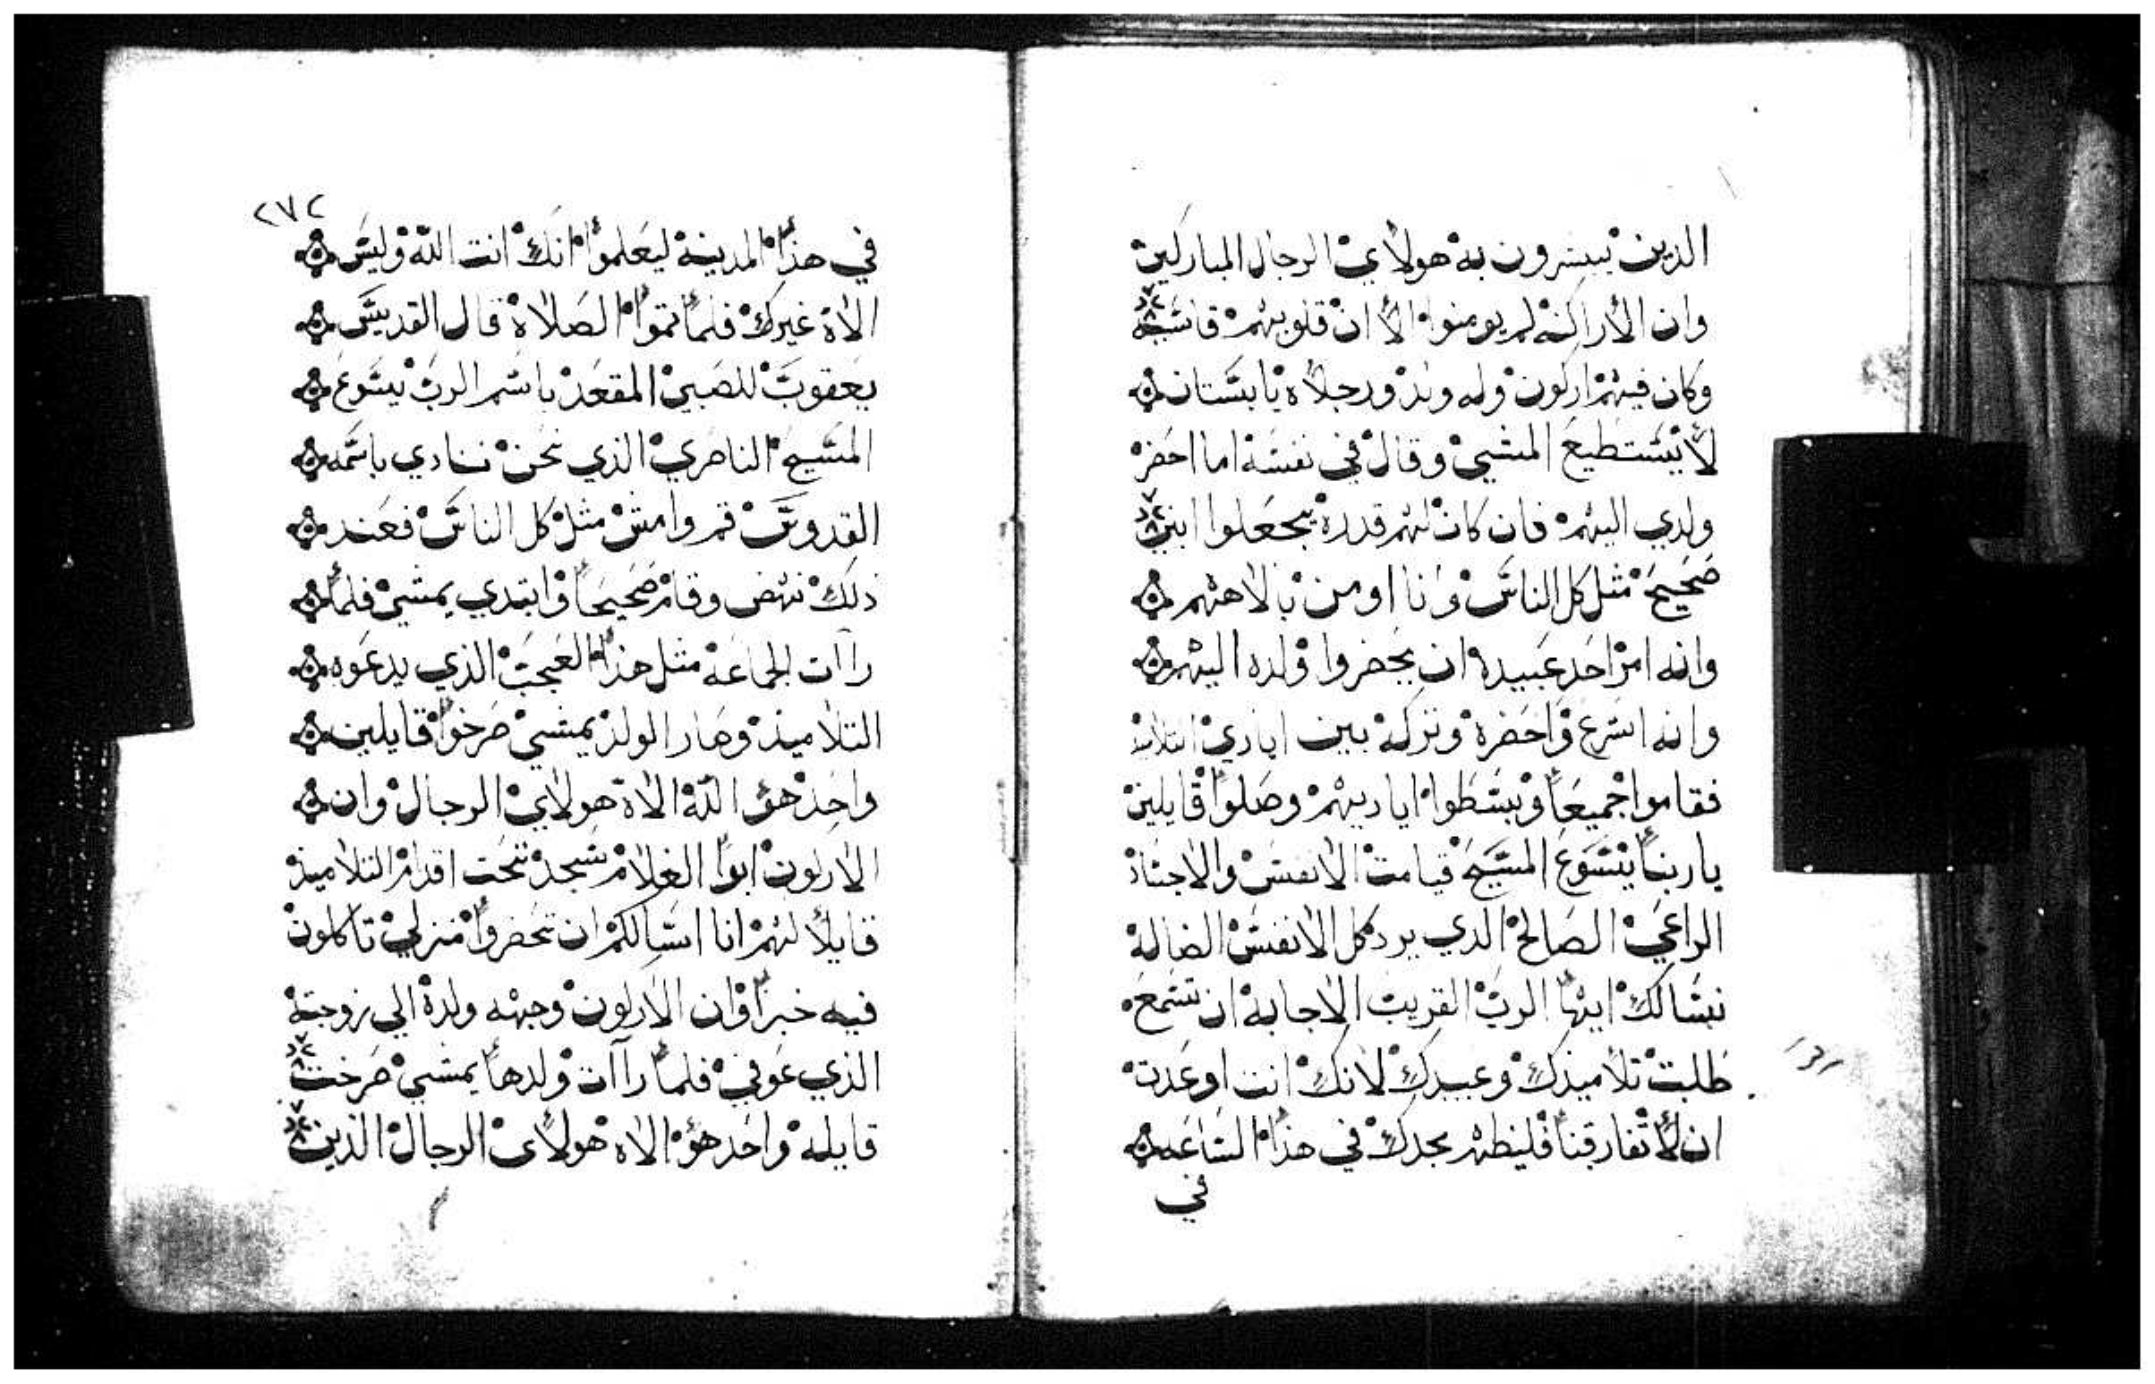 الدين يبشرون به هولاي الرجال المباركين
وان الأراكنه لم يومنوا الا ان قلوبهم قاسيه
وكان فيهم اركون وله ولد ورجلاه يابستان
لا يستطيع المشي وقال في نفسه اما احضر
ولدي اليهم فان كان لهم قدرة يجعلوا ابني
صحيح مثل كل الناس وانا اومن بالاههم
وانه امر احد عبيده ان يحضروا ولده اليهم
وانه اسرع واحضره وتركه بين ايادي التلاميذ
فقاموا جميعاً وبسطوا اياديهم وصلوا قايلين
يا ربنا يسوع المسيح قيامت الانفس والاجساد
الراعي الصالح الدي يرد كل الانفس الضالة
نسالك ايها الرب القريب الاجابه ان تسمع
طلبت تلاميذك وعبيدك لانك انت اوعدت
ان لا تفارقنا فليظهر مجدك في هذا الساعه
في
٢٧٢
في هذا المدينه ليعلموا انك انت الله وليس
الاه غيرك فلما تموا الصلاة قال القديس
يعقوب للصبي المقعد باسم الرب يسوع
المسيح الناصري الذي نحن ننادي باسمه
القدوس قم وامش مثل كل الناس فعند
ذلك نهض وقام صحيحاً وابتدي يمشي فلما
راات الجماعه مثل هذا العجب الذي يدعوه
التلاميذ وصار الولد يمشي صرخوا قايلين
واحد هو الله الاه هولاي الرجال وان
الاركون ابوا الغلام سجد تحت اقدام التلاميذ
قايلاً لهم انا اسالكم ان تحضروا منزلي تاكلون
فيه خبزاً وان الاركون وجه ولده الي زوجته
الذي عوفي فلما راات ولدها يمشي صرخت
قايله واحد هو الاه هولاي الرجال الذين